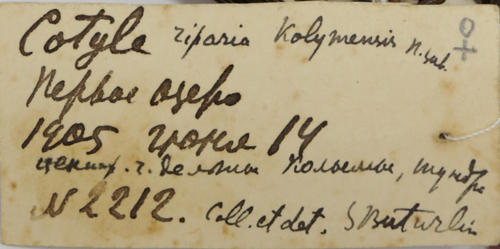 Cotyle riparia Kolymensis n. sub. ♀
Первое озеро
1905 июня 14
дельты Колымы, тундра
N 2212. Coll. et det. S Buturlin